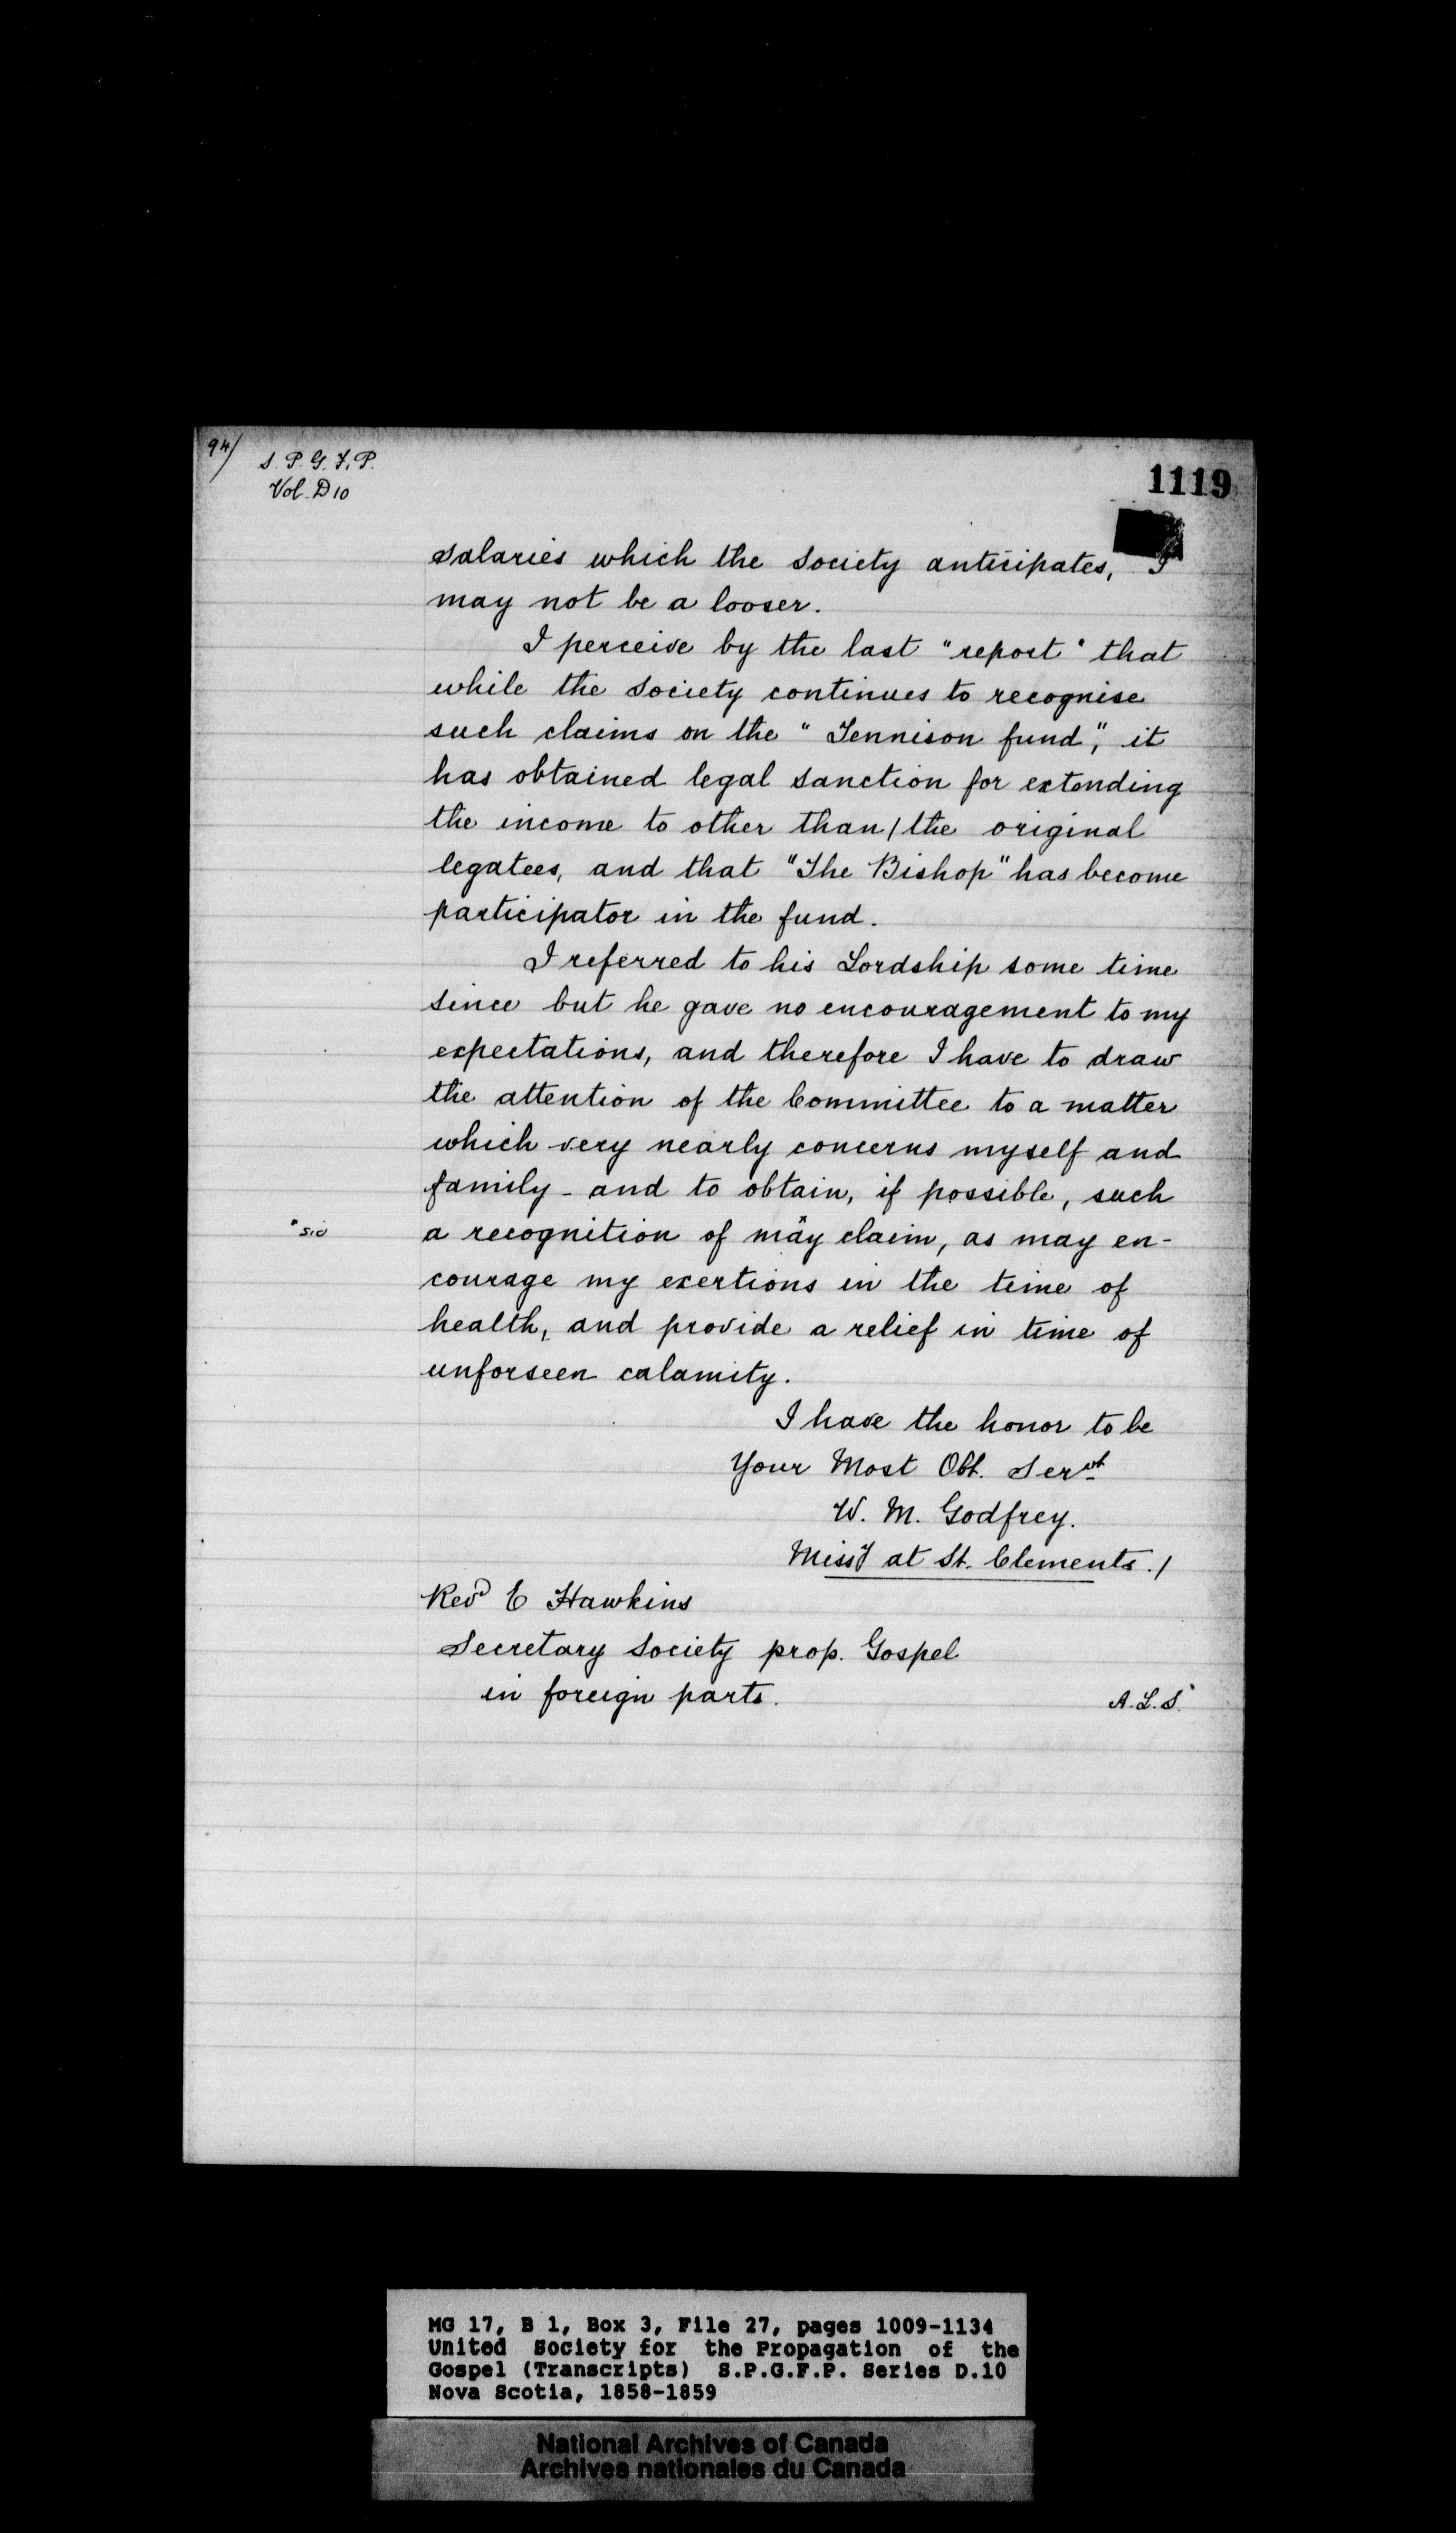 94/
S. P. G. F. P.
Vol. D 10
1119
salaries which the Society anticipates, I
may not be a looser.
I perceive by the last "report" that
while the Society continues to recognise
such claims on the "Tennison fund", it
has obtained legal sanction for extending
the income to other than/the original
legatees, and that "The Bishop" has become
participator in the fund.
I referred to his Lordship some time
since but he gave no encouragement to my
expectations, and therefore I have to draw
the attention of the Committee to a matter
which very nearly concerns myself and
family - and to obtain, if possible, such
*sic
a recognition of may* claim, as may en-
courage my exertions in the time of
health, and provide a relief in time of
unforseen calamity.
I have the honor to be
Your Most Obt. Servt
W. M. Godfrey.
Missy at St. Clements ./
Revd E Hawkins
Secretary Society prop. Gospel
in foreign parts.
A.L.S.
MG 17, B 1, Box 3, File 27, pages 1009-1134
United Society for the Propagation of the
Gospel (Transcripts) S.P.G.F.P. Series D.10
Nova Scotia, 1858-1859
National Archives of Canada
Archives nationales du Canada